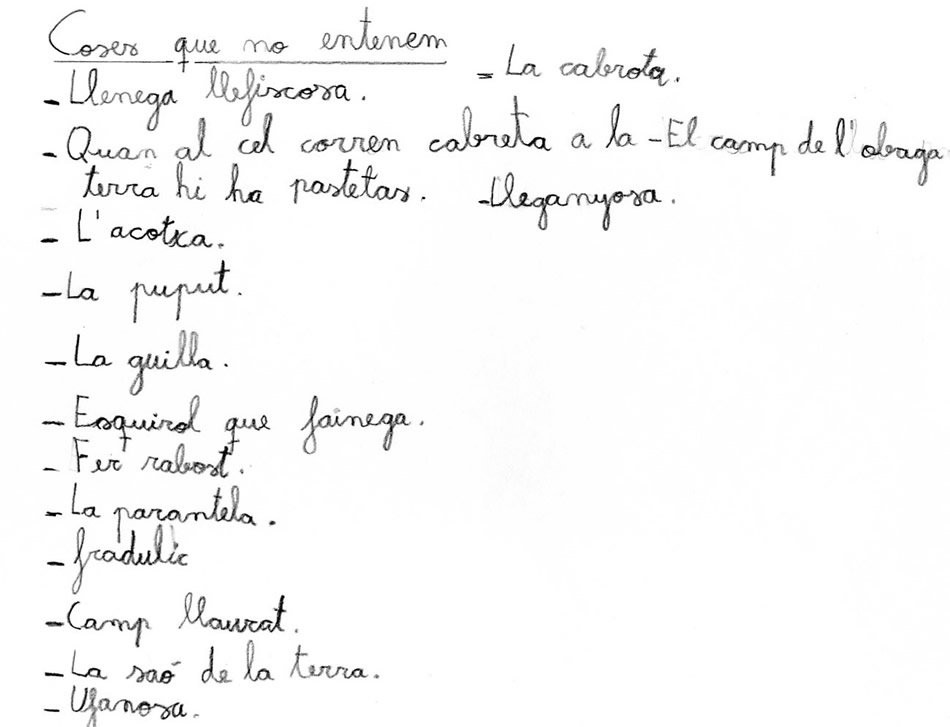 Coses que no entenem
- Llenega llefiscosa.
- Quan al cel corren cabreta a la
terra hi ha pastetas.
- L'acotxa.
- La puput.
- La guilla.
- Esquirol que fainega.
- Fer rabost.
- La parantela.
- fradulic
- Camp llaurat.
- La saó de la terra.
- Ufanosa.
- La cabrota.
- El camp de l'obaga
- Lleganyosa.